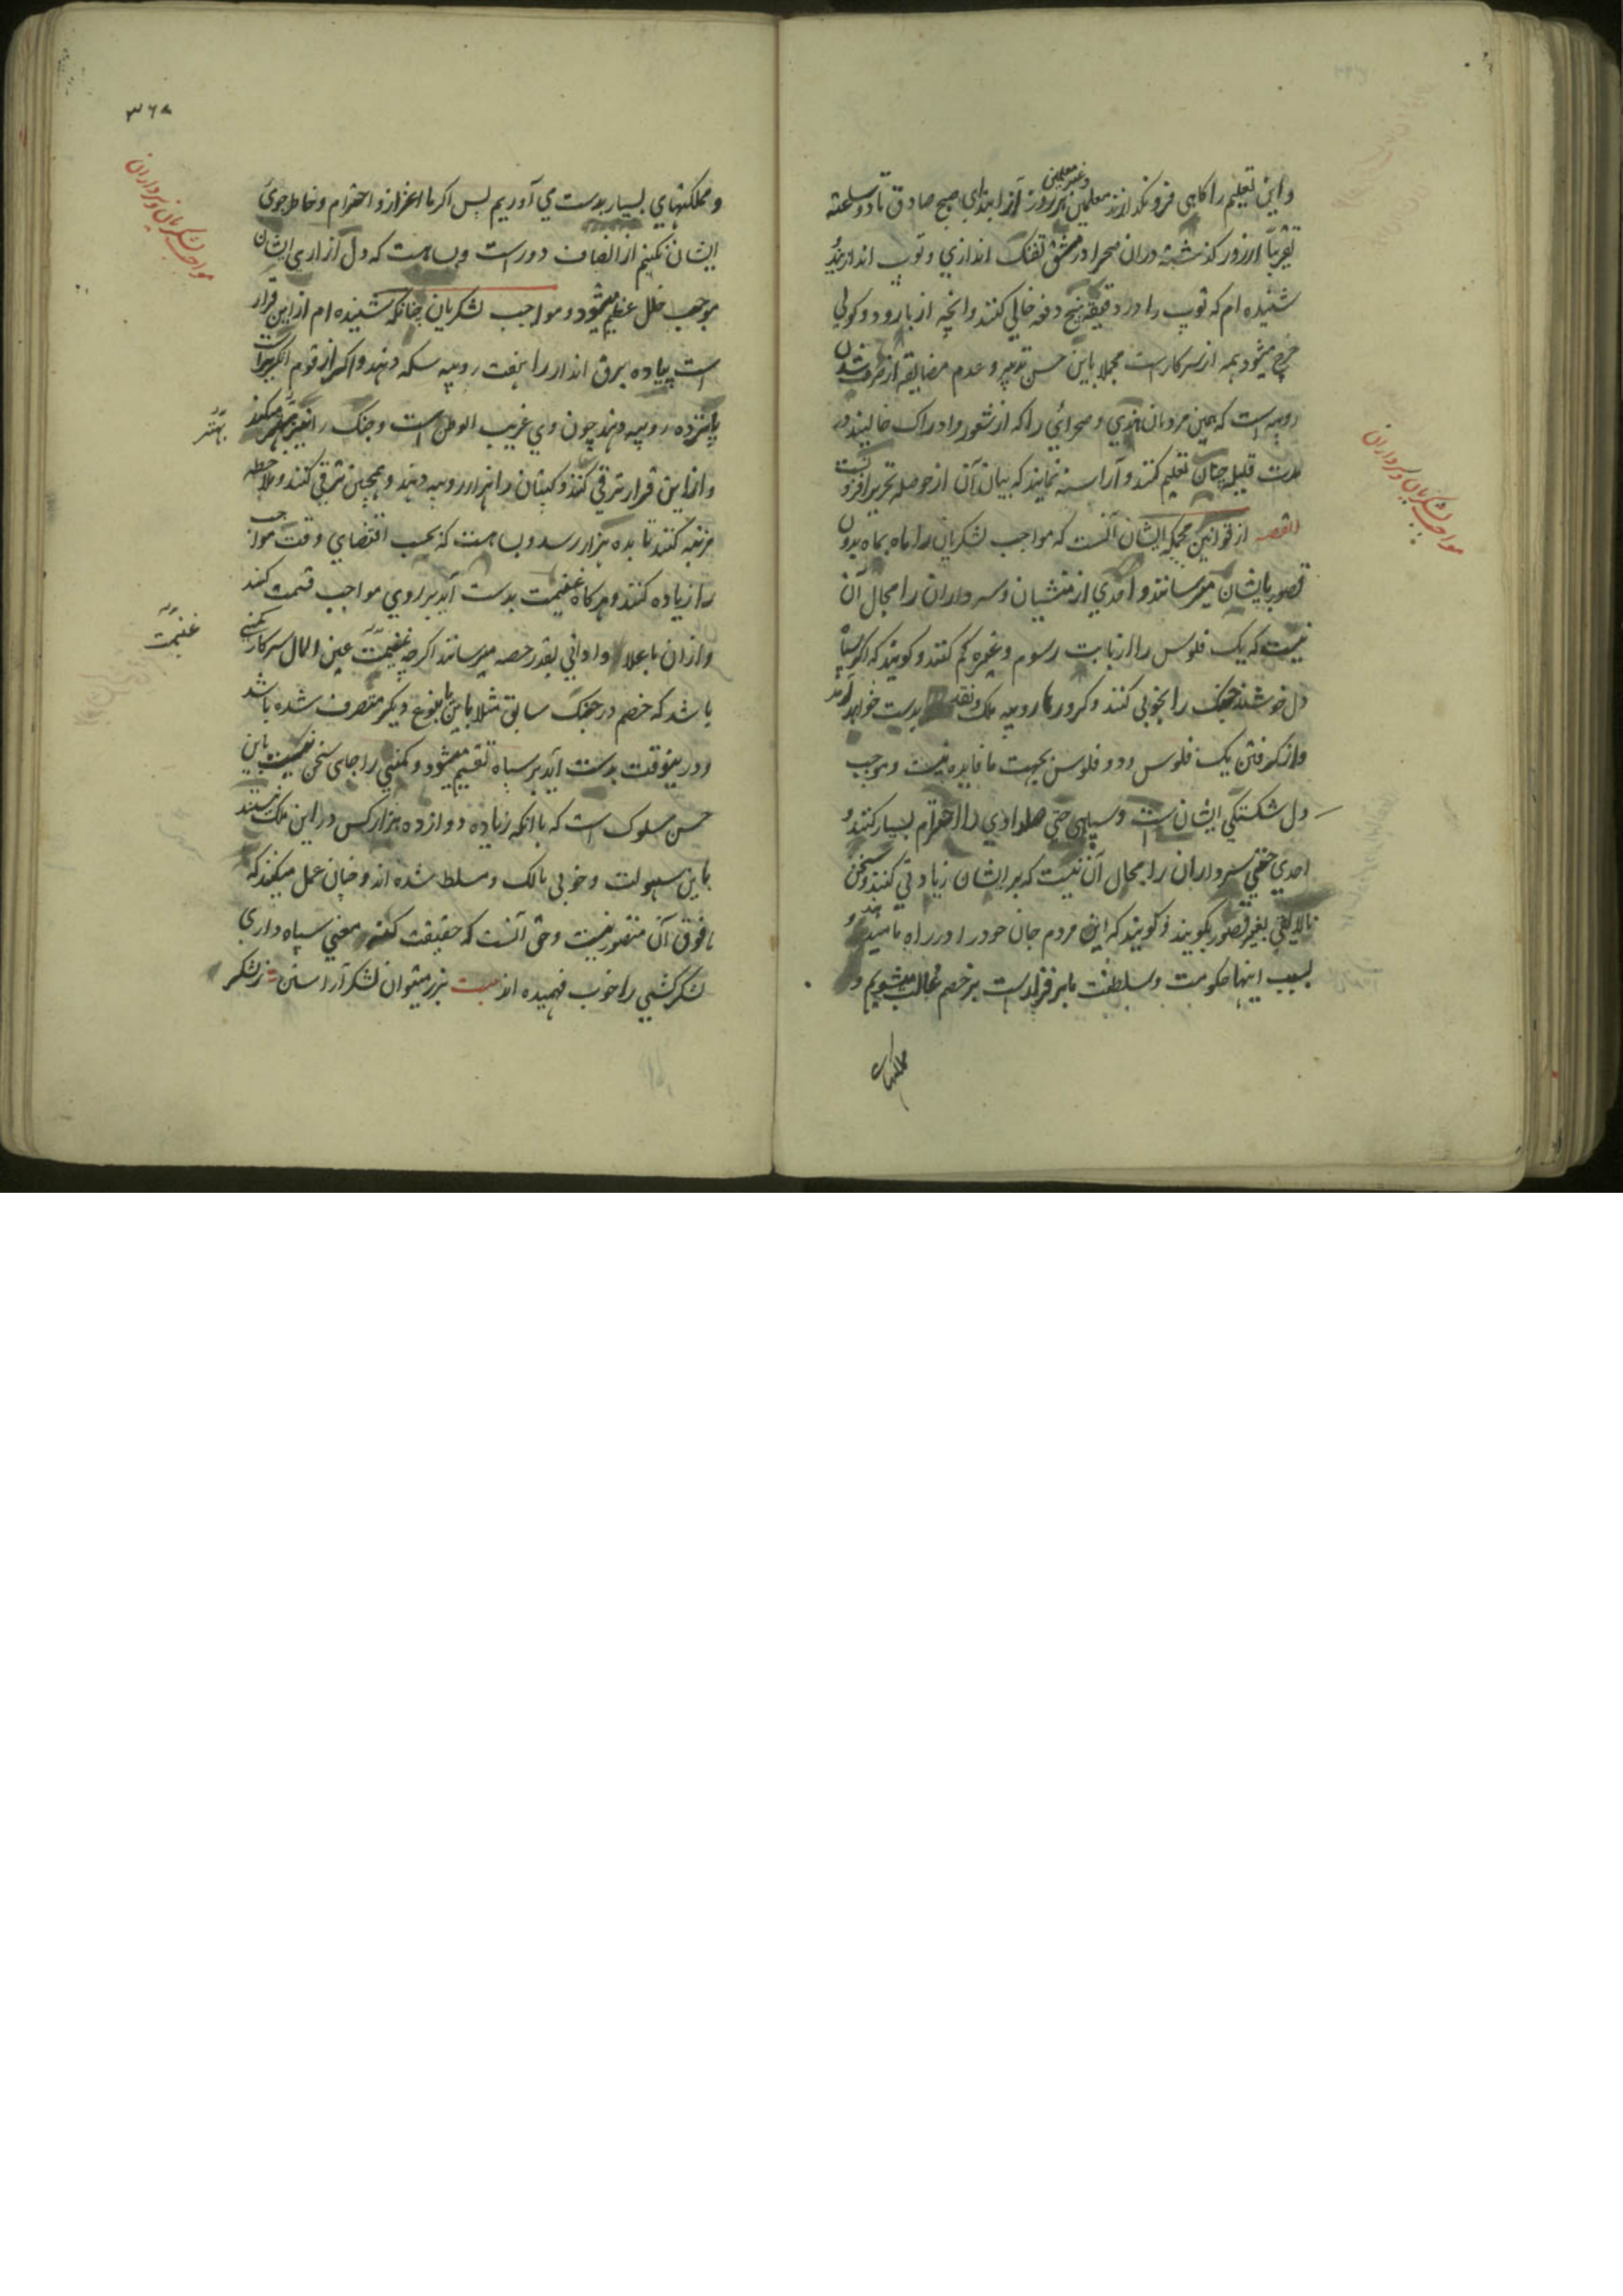 و این تعلیم را گاهی فرو نگذارند معلمین و غیر معلمین هر روز از ابتدای صبح صادق تا دو ساعته
تقریباً از روز گذشته در آن صحرا در مشق تفنگ اندازی و توپ اندازیند
شنیده ام که توپ را در دقیقه پنج دفعه خالی کنند و آنچه از بارود و گولی
خرج میشود همه از سرکار است مجملا باین حسن تدبیر و عدم مضایقه از صرف شدن
روپیه است که همین مردمان هندی و صحرائی را که از شعور و ادراک خالیند در
مدت قلیله چنان تعلیم کنند و آراسته نمایند که بیان آن از حوصله تحریر افزونست
القصه از قوانین محکمه ایشان آنست که مواجب لشکریان را ماه بماه بدون
قصور بایشان میرسانند و احدی از منشیان و سرداران را مجال آن
نیست که یک فلوس را از بابت رسوم و غیره کم کنند و گویند که اگر سپاه
دل خوشند جنگ را بخوبی کنند و کرورها روپیه ملک و نقد بدست خواهد آمد
و از گرفتن یک فلوس و دو فلوس بجهت ما فایده نیست و موجب
دل شکستگی ایشان است و سپاهی حتی حلوادی را احترام بسیار کنند و
احدی حتی سرداران را مجال آن نیست که بر ایشان زیادتی کنند و سخن
نالایقی بغیر قصور بگویند و گویند که این مردم جان خود را در راه ما میدهند و
بسبب اینها حکومت و سلطنت ما برقرار است بر خصم غالب میشویم و
مملکتهای
مواجب لشکریان و سرداران
۳۶۸
و مملکتهای بسیار بدست می آوریم پس اگر ما اعزاز و احترام و خاطرجوئی
ایشان نکنیم از انصاف دور است و بسا هست که دل آزاری ایشان
موجب خلل عظیم میشود و مواجب لشکریان چنانکه شنیده ام از این قرار
است پیاده برق انداز را هفت روپیه سکه دهند و اگر از قوم انگریز است
پانزده روپیه دهند چون وی غریب الوطن است و جنگ را بهتر میکند
و از این قرار ترقی کنند و کپتان را هزار روپیه دهند و همچنین ترقی کنند و ملاحظه
مرتبه کنند تا بده هزار رسد و بسا هست که بحسب اقتضای وقت مواجب
را زیاده کنند و هرگاه غنیمت بدست آید بر روی مواجب قسمت کنند
و از آن باعلا و ادانی بقدر حصه میرسانند اگر چه غنیمت عین المال سرکار کمپنی
باشد که خصم در جنگ سابق مثلا باین یا بنوع دیگر متصرف شده باشد
و در ینوقت بدست آید بر سپاه تقسیم میشود و کمپنی را جای سخن نیست باین
حسن سلوک است که باانکه زیاده دوازده هزار کس در این ملک نیستند
باین سهولت و خوبی مالک و مسلط شده اند و چنان عمل میکنند که
مافوق آن متصور نیست و حق آنست که حقیقت معنی سپاه داری
لشکر کشی را خوب فهمیده اند بیت بزر میتوان لشکر آراستن
مواجب لشکریان و سرداران
بهتر
غنیمت